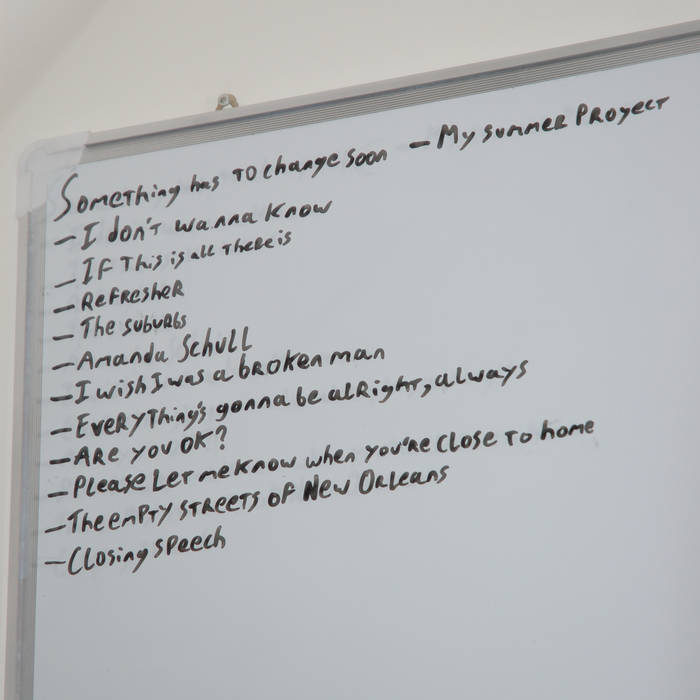 Something has to change soon - My summer Proyect
- I don't wanna know
- If this is all there is
- Refresher
- The suburbs
- Amanda Schull
- I wish I was a broken man
- Everything's gonna be alright, always
- Are you ok?
- Please let me know when you're close to home
- The empty streets of New Orleans
- Closing speech